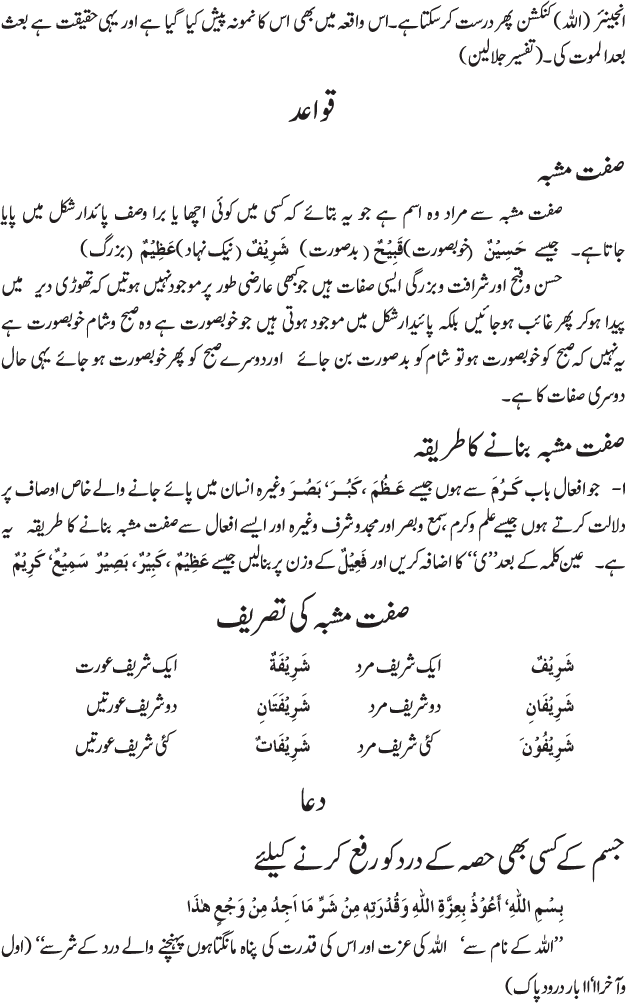 انجینئر (اللہ) کنکشن پھر درست کرسکتا ہے۔ اس واقعہ میں بھی اس کا نمونہ پیش کیا گیا ہے اور یہی حقیقت ہے بعث
بعد الموت کی۔ (تفسیر جلالین)
قواعد
صفت مشبہ
صفت مشبہ سے مراد وہ اسم ہے جو یہ بتائے کہ کسی میں کوئی اچھا یا برا وصف پائدار شکل میں پایا
جاتا ہے۔ جیسے حَسِیْنٌ (خوبصورت) قَبِیْحٌ (بدصورت) شَرِیْفٌ (نیک نہاد) عَظِیْمٌ (بزرگ)
حسن و قبح اور شرافت و بزرگی ایسی صفات ہیں جو کبھی عارضی طور پر موجود نہیں ہوتیں کہ تھوڑی دیر میں
پیدا ہوکر پھر غائب ہوجائیں بلکہ پائیدار شکل میں موجود ہوتی ہیں جو خوبصورت ہے وہ صبح و شام خوبصورت ہے
یہ نہیں کہ صبح کو خوبصورت ہو تو شام کو بدصورت بن جائے اور دوسرے صبح کو پھر خوبصورت ہو جائے یہی حال
دوسری صفات کا ہے۔
صفت مشبہ بنانے کا طریقہ
۱- جو افعال باب کَرُمَ سے ہوں جیسے عَظُمَ، کَبُرَ، بَصُرَ وغیرہ انسان میں پائے جانے والے خاص اوصاف پر
دلالت کرتے ہوں جیسے علم و کرم، سمع و بصر اور مجد و شرف وغیرہ اور ایسے افعال سے صفت مشبہ بنانے کا طریقہ یہ
ہے۔ عین کلمہ کے بعد ”ی“ کا اضافہ کریں اور فَعِیْلٌ کے وزن پر بنالیں جیسے عَظِیْمٌ، کَبِیْرٌ، بَصِیْرٌ سَمِیْعٌ، کَرِیْمٌ
صفت مشبہ کی تصریف
شَرِیْفٌ ایک شریف مرد شَرِیْفَةٌ ایک شریف عورت
شَرِیْفَانِ دو شریف مرد شَرِیْفَتَانِ دو شریف عورتیں
شَرِیْفُوْنَ کئی شریف مرد شَرِیْفَاتٌ کئی شریف عورتیں
دعا
جسم کے کسی بھی حصہ کے درد کو رفع کرنے کیلئے
بِسْمِ اللّٰہِ، أَعُوْذُ بِعِزَّةِ اللّٰہِ وَقُدْرَتِہٖ مِنْ شَرِّ مَا اَجِدُ مِنْ وَجْعٍ ھٰذَا
”اللہ کے نام سے، اللہ کی عزت اور اس کی قدرت کی پناہ مانگتا ہوں پہنچنے والے درد کے شر سے“ (اول
وآخر ۱۱،۱۱ بار درود پاک)